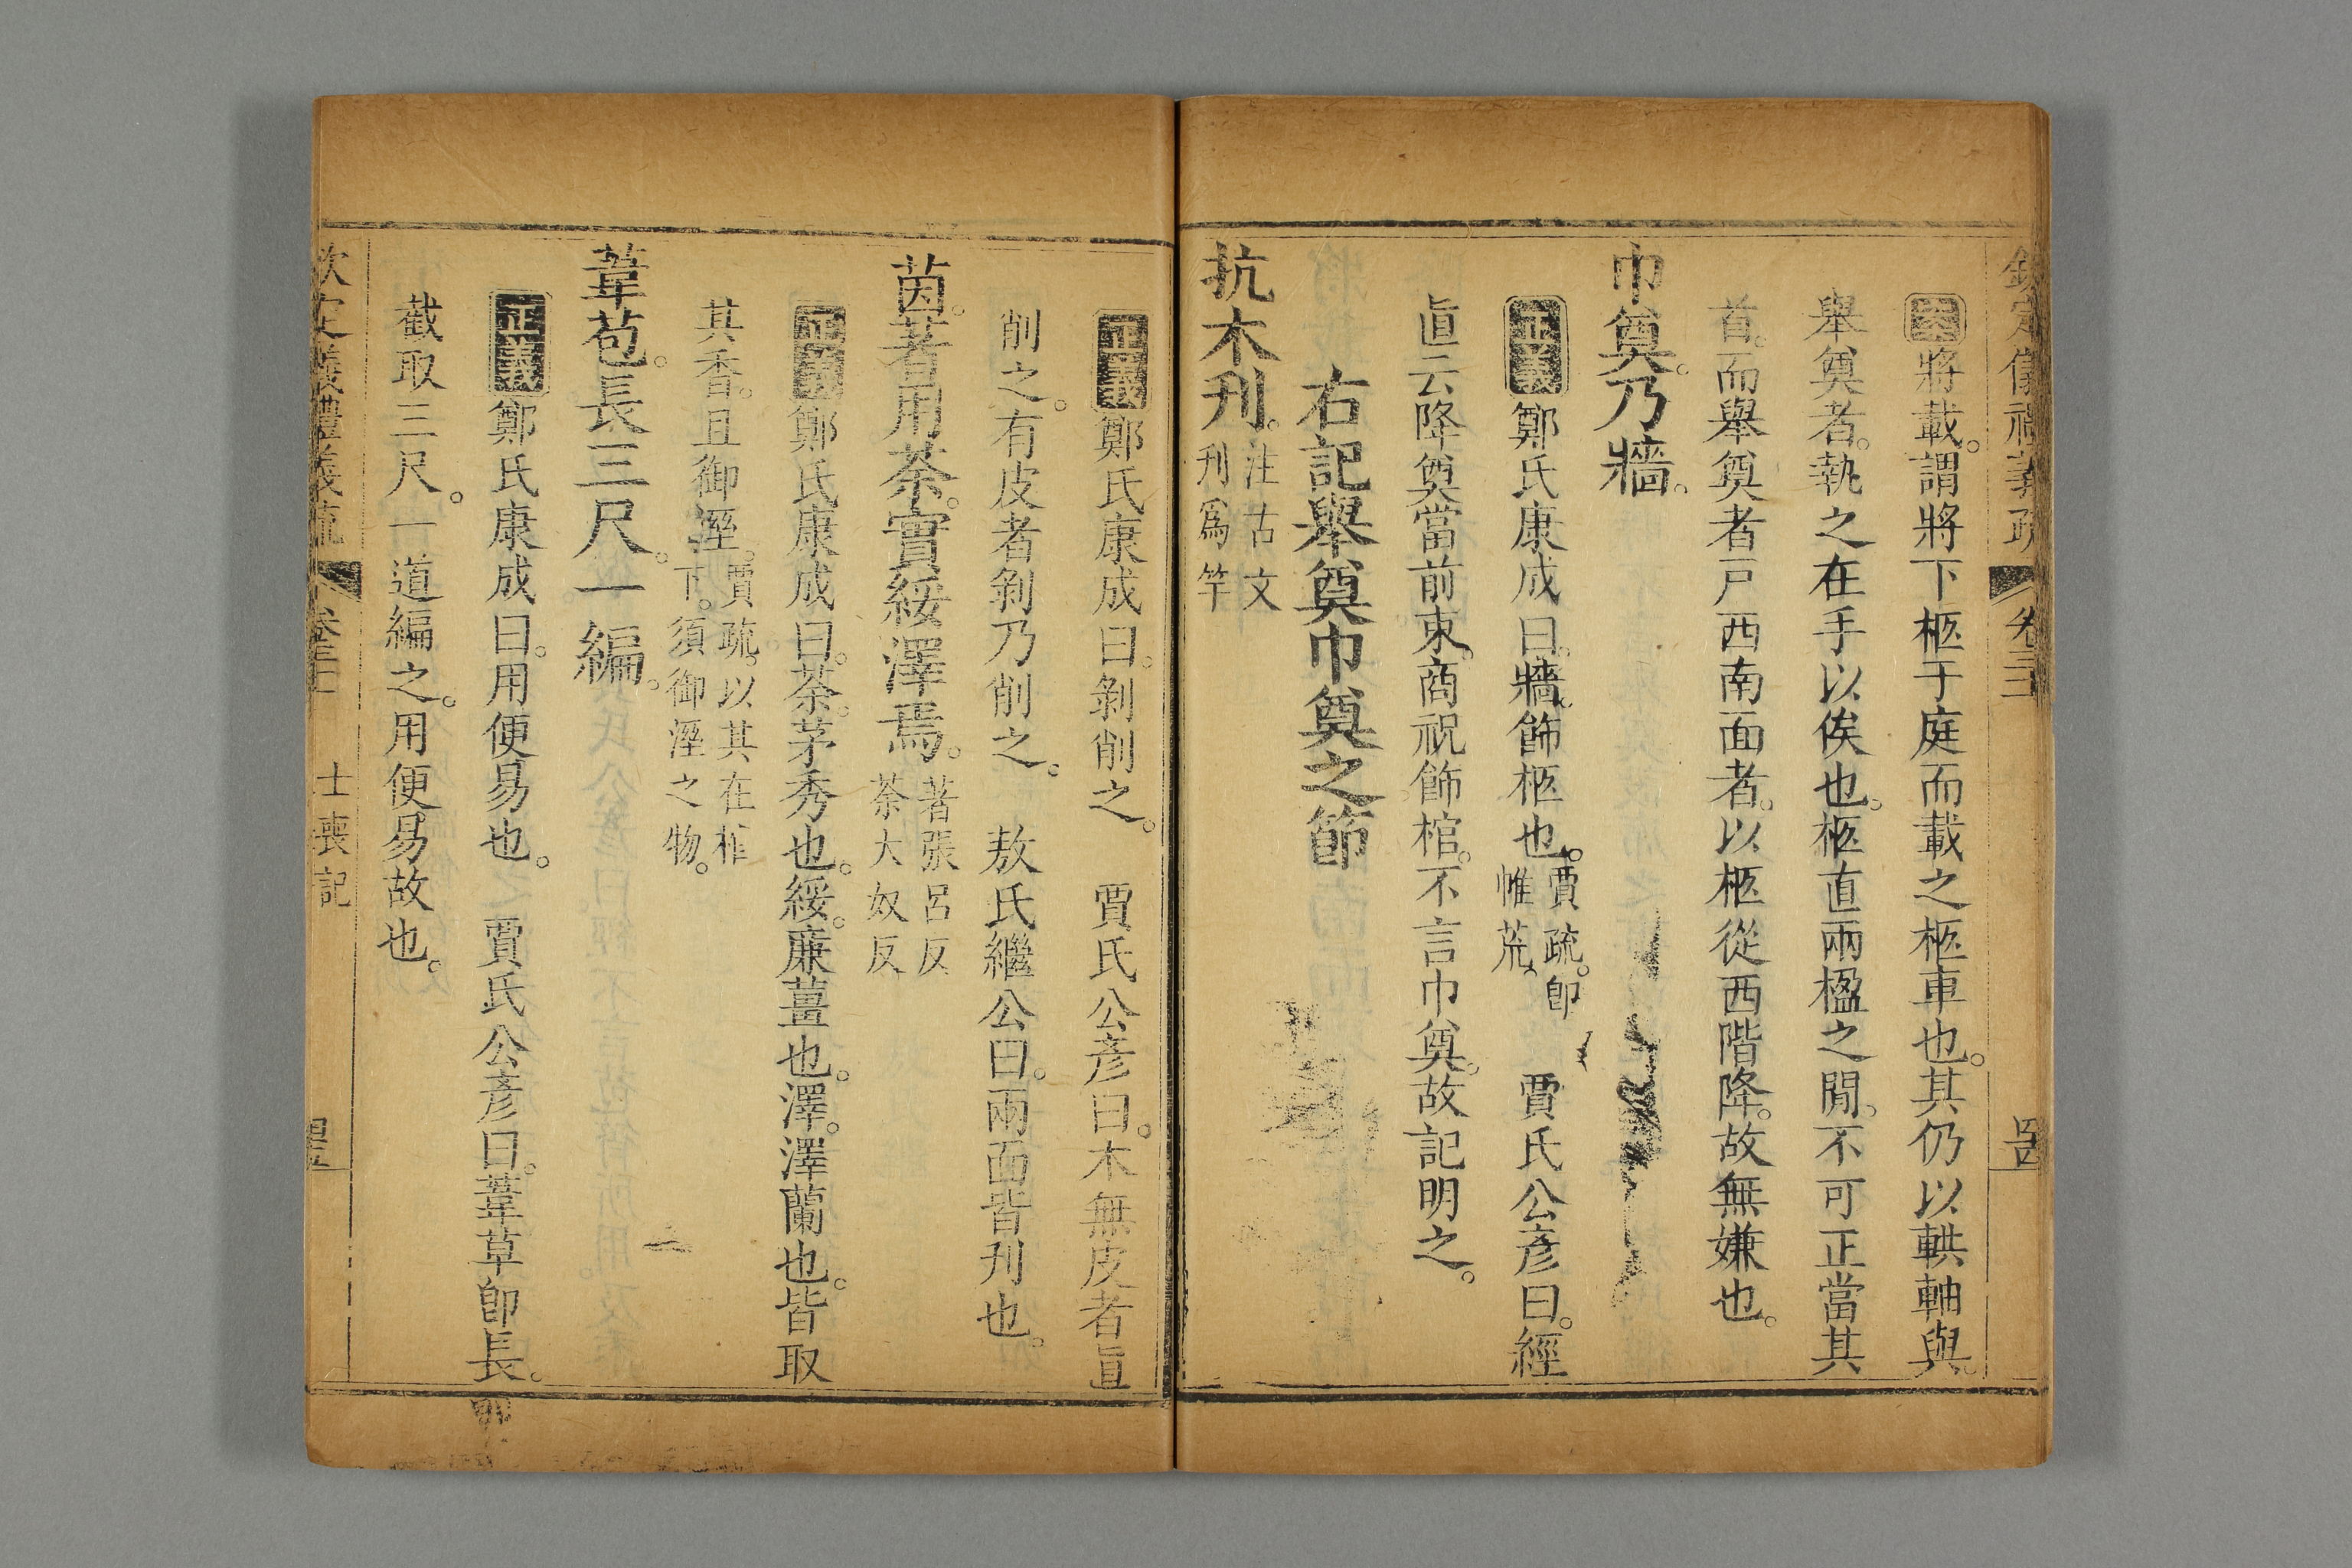 欽定儀禮義疏 卷三 
案將載。謂將下柩于庭而載之柩車也。其仍以輁軸與。
舉奠者。執之在手以俟也。柩直兩楹之閒。不可正當其
首。而舉奠者戶西南面者。以柩從西階降。故無嫌也。
巾奠。乃牆。
正義鄭氏康成曰。牆。飾柩也。賈疏。卽
帷荒。
賈氏公彥曰。經
直云降奠當前束。商祝飾棺。不言巾奠。故記明之。
右記舉奠巾奠之節
抗木刊。注古文
刊爲竿
正義鄭氏康成曰。剝削之。 賈氏公彥曰。木無皮者直
削之。有皮者剝乃削之。 敖氏繼公曰。兩面皆刊也。
茵。著用荼。實綏澤焉。著張呂反
荼大奴反
正義鄭氏康成曰。荼。茅秀也。綏。廉薑也。澤。澤蘭也。皆取
其香。且御溼。賈疏。以其在柩
下。須御溼之物。
葦苞。長三尺。一編。
正義鄭氏康成曰。用便易也。 賈氏公彥曰。葦草卽長。
截取三尺。一道編之。用便易故也。
欽定儀禮義疏 士喪記